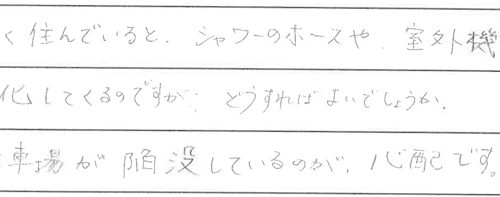 く住んでいると、シャワーのホースや、室外機
化してくるのですが、どうすればよいでしょうか。
車場が陥没しているのが、心配です。